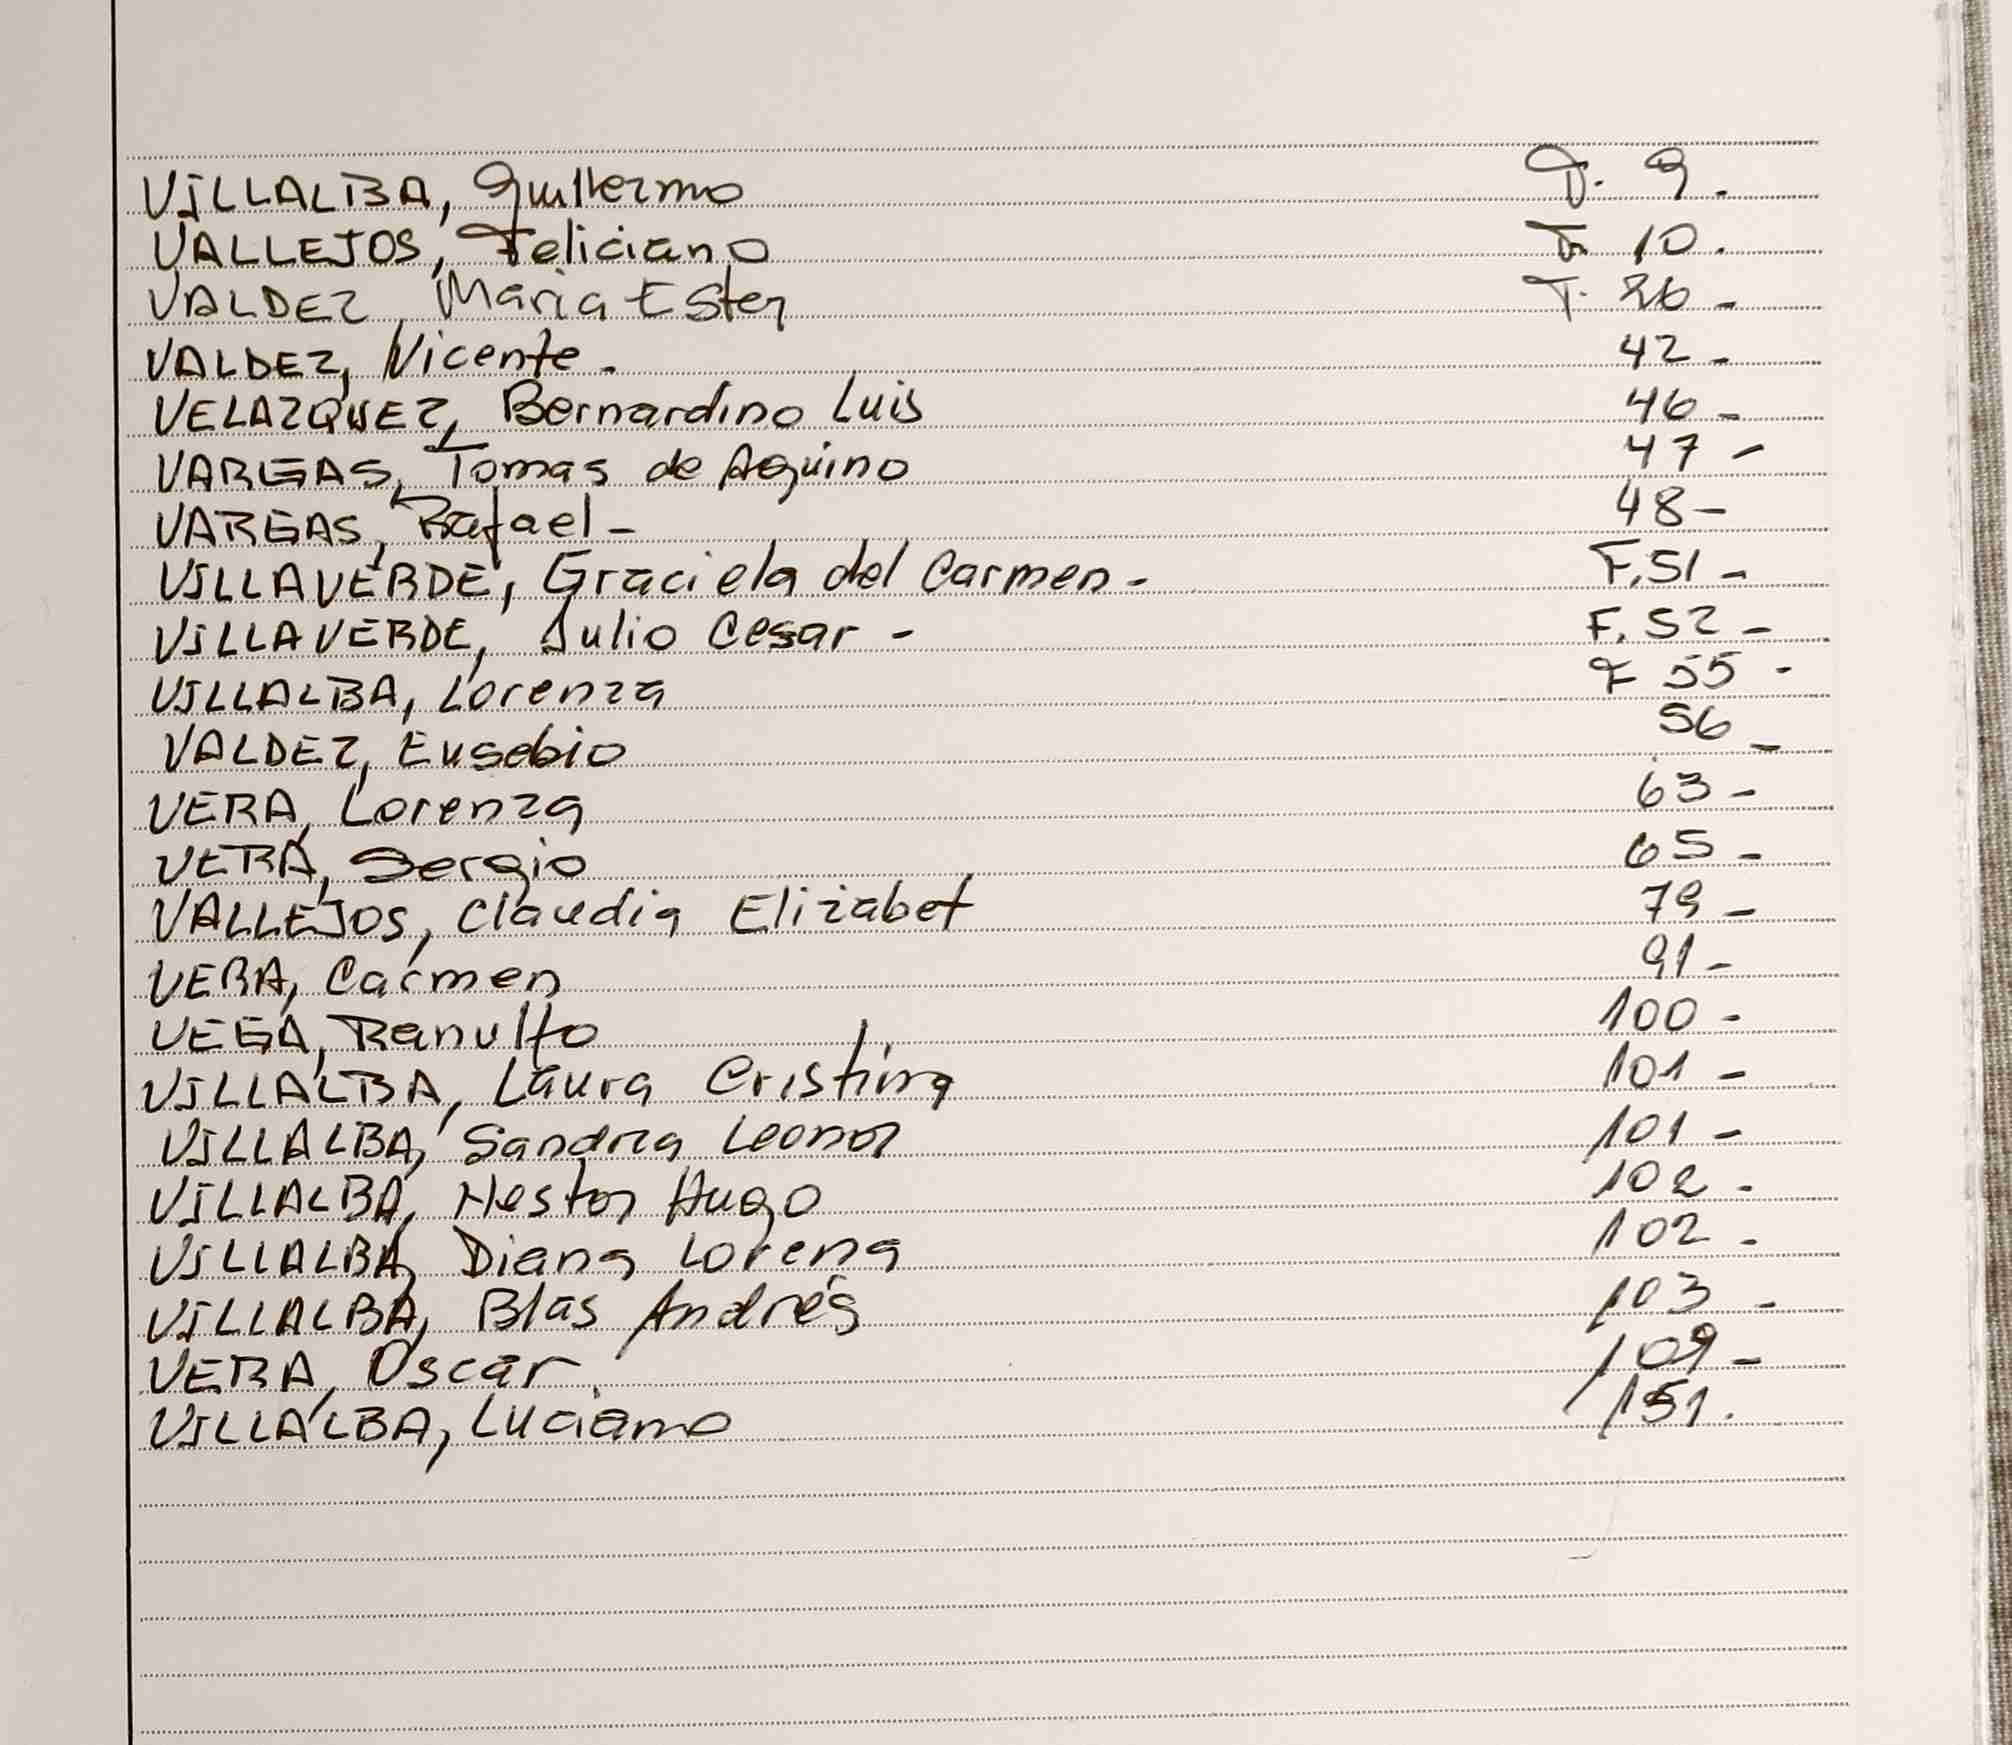 VILLALBA, Guillermo F. 9.
VALLEJOS, Feliciano F. 10.
VALDEZ, Maria Ester F. 26-
VALDEZ, Vicente. 42-
VELAZQUEZ, Bernardino Luis 46-
VARGAS, Tomas de Aquino 47-
VARGAS, Rafael- 48-
VILLAVERDE, Graciela del Carmen- F. 51-
VILLAVERDE, Julio Cesar- F. 52-
VILLALBA, Lorenza F 55-
VALDEZ, Eusebio 56-
VERA, Lorenza 63-
VERA, Sergio 65-
VALLEJOS, Claudia Elizabet 79-
VERA, Carmen 91-
VEGA, Ranulfo 100-
VILLALBA, Laura Cristina 101-
VILLALBA, Sandra Leonor 101-
VILLALBA, Nestor Hugo 102-
VILLALBA, Diana Lorena 102-
VILLALBA, Blas Andrés 103-
VERA, Oscar. 109-
VILLALBA, Luciano 151.